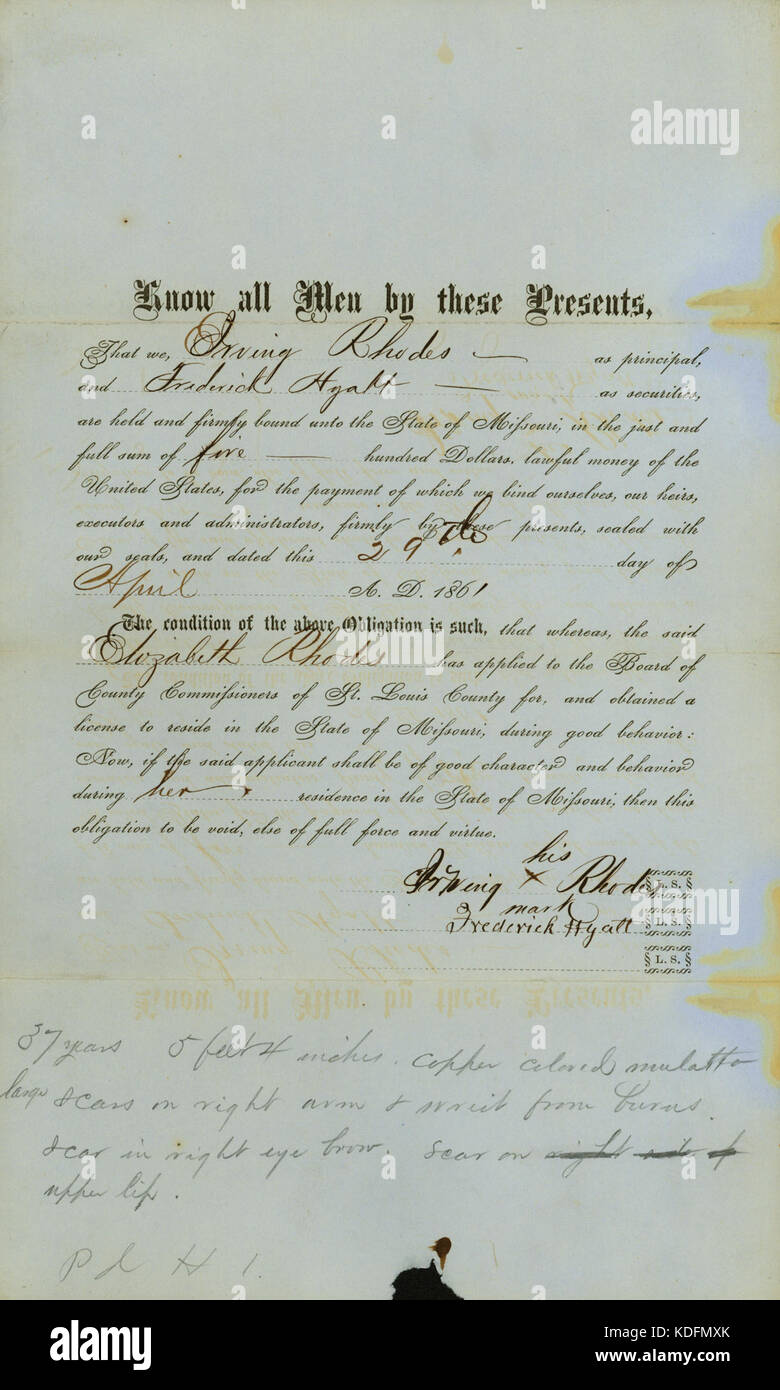 Know all Men by these Presents,
That we, Irving Rhodes — as principal,
and Frederick Hyatt — as securities,
are held and firmly bound unto the State of Missouri, in the just and
full sum of five — hundred Dollars, lawful money of the
United States, for the payment of which we bind ourselves, our heirs,
executors and administrators, firmly by these presents, sealed with
our seals, and dated this 29th day of
April A. D. 1861
The condition of the above Obligation is such, that whereas, the said
Elizabeth Rhodes has applied to the Board of
County Commissioners of St. Louis County for, and obtained a
license to reside in the State of Missouri, during good behavior:
Now, if the said applicant shall be of good character and behavior
during her residence in the State of Missouri, then this
obligation to be void, else of full force and virtue.
his
Irving X Rhodes L. S.
mark
Frederick Hyatt L. S.
L. S.
37 years 5 feet 4 inches. copper colored mulatto
large scars on right arm & wrist from burns.
scar in right eye brow. scar on right side of
upper lip.
Pd H 1.
alamy
alamy
alamy
alamy
Image ID: KDFMXK
www.alamy.com